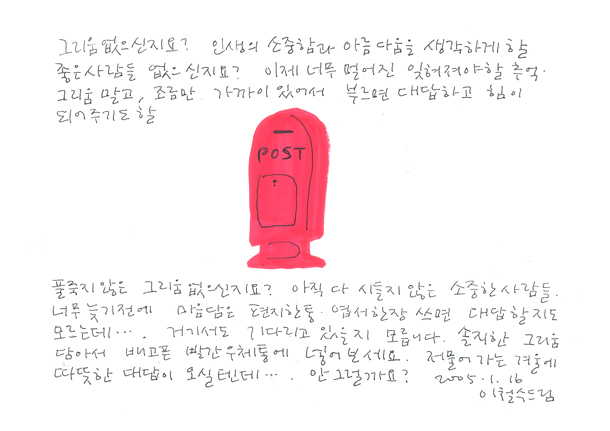 그리움 없으신지요? 인생의 소중함과 아름다움을 생각하게 할
좋은사람들 없으신지요? 이제 너무 멀어진 잊혀져야할 추억·
그리움 말고, 조금만 가까이 있어서 부르면 대답하고 힘이
되어주기도 할
POST
풀죽지않은 그리움 없으신지요? 아직 다 시들지 않은 소중한 사람들.
너무 늦기전에 마음담은 편지한통·엽서한장 쓰면 대답할지도
모르는데···. 거기서도 기다리고 있을지 모릅니다. 솔직한 그리움
담아서 배고픈 빨간우체통에 넣어보세요. 저물어가는 겨울에
따뜻한 대답이 오실텐데···. 안그럴까요? 2005.1.16
이철수드림